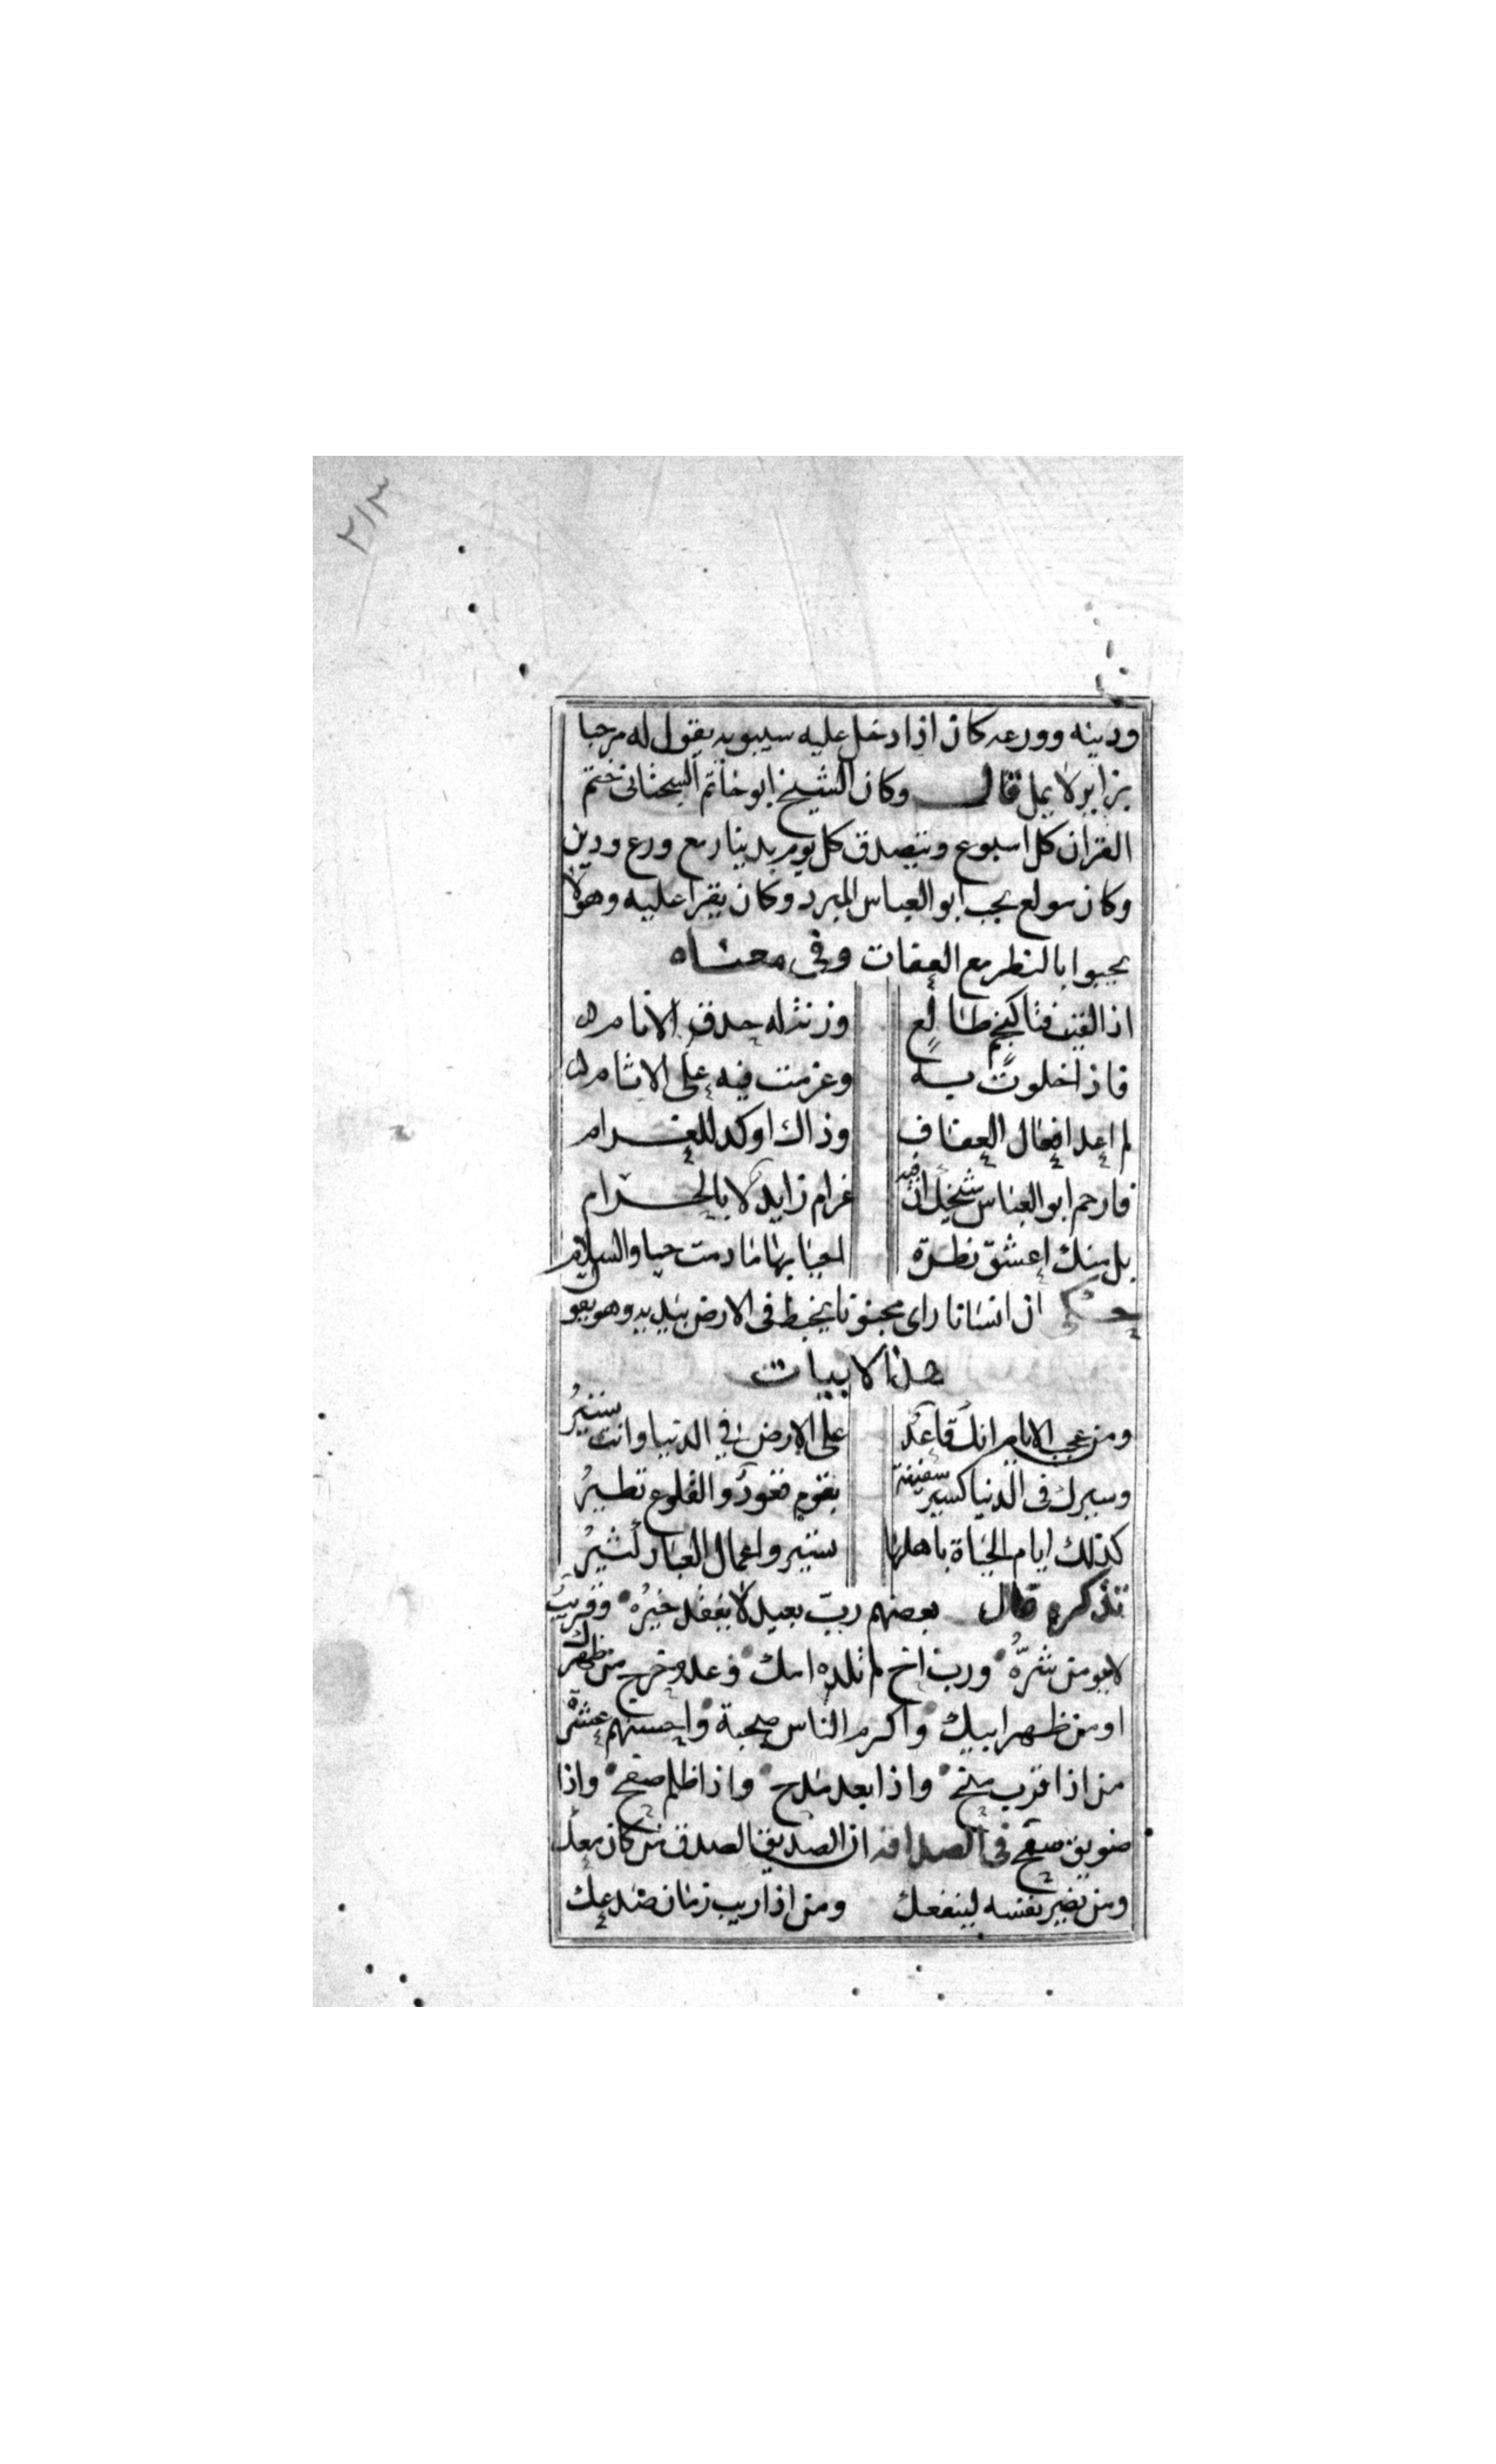 ٢١٣
ودينه وورعه كان اذا دخل عليه سيبويه يقول له مرحبا
بزاير لا يمل قال وكان الشيخ ابو خاتم السجتانى ختم
القران كل اسبوع ويتصدق كل يوم بدينار مع ورع ودين
وكان مولع بحب ابو العباس المبرد وكان يقرا عليه وهولا
يحبوا بالنظر مع العفات وفى معناه
اذا لقيت فتا كنجم طالع ورنت له حدق الانام
فاذا خلوت به وعزمت فيه على الاثام
لم اعد افعال العفاف وذاك اوكد للغرام
فارحم ابو العباس غرام زايد لا بالحرام
بل منك اعشق نظرة احيا بها ما دمت حيا والسلام
حكى ان انسانا راى مجنونا يخبط فى الارض بيديه وهو يقو
هذا الابيات
ومن عجب الايام انك قاعد على الارض فى الدنيا وانت تسير
وسيرك فى الدنيا كسير سفينة بقوم قعود والقلوع تطير
كذلك ايام الحياة باهلها تسير واعمال العباد تشير
تذكره قال بعضهم رب بعيد لا يفقد خيره وقريب
لا يومن شره ورب اخ لم تلده امك وعدو خرج من ظهرك
او من ظهر ابيك واكرم الناس صحبة واحسنهم عشرة
من اذا قرب منح واذا بعد مدح واذا ظلم صفح واذا
ضويق سمح فى الصداقه ان الصديق الصدق من كان معك
ومن يضير نفسه لينفعك ومن اذا ريب زمان صدعك